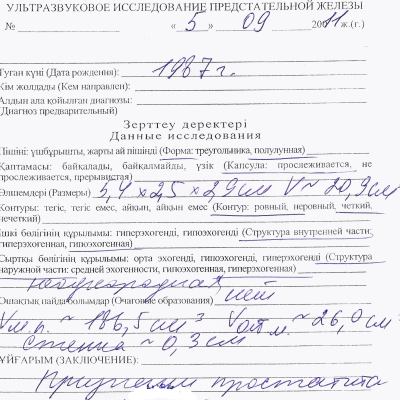 УЛЬТРАЗВУКОВОЕ ИССЛЕДОВАНИЕ ПРЕДСТАТЕЛЬНОЙ ЖЕЛЕЗЫ
№ « 5 » 09 2011 ж.(г.)
Туған күні (Дата рождения): 1987 г.
Кім жолдады (Кем направлен):
Алдын ала қойылған диагнозы:
(Диагноз предварительный)
Зерттеу деректері
Данные исследования
Пішіні: үшбұрышты, жарты ай пішінді (Форма: треугольника, полулунная)
Қаптамасы: байқалады, байқалмайды, үзік (Капсула: прослеживается, не
прослеживается, прерывистая)
Өлшемдері (Размеры) 5,4 x 2,5 x 2,9 см V ~ 20,9 см
Контуры: тегіс, тегіс емес, айқын, айқын емес (Контур: ровный, неровный, четкий,
нечеткий)
Ішкі бөлігінің құрылымы: гиперэхогенді, гипоэхогенді (Структура внутренней части:
гиперэхогенная, гипоэхогенная)
Сыртқы бөлігінің құрылымы: орта эхогенді, гипоэхогенді, гиперэхогенді (Структура
наружной части: средней эхогенности, гипоэхогенная, гиперэхогенная)
неоднородная
Ошақтық пайда болымдар (Очаговые образования) нет
Vм.п. ~ 186,5 см³ Vост м. ~ 26,0 см³
Стенка ~ 0,3 см
ҰЙҒАРЫМ (ЗАКЛЮЧЕНИЕ):
Признаки простатита